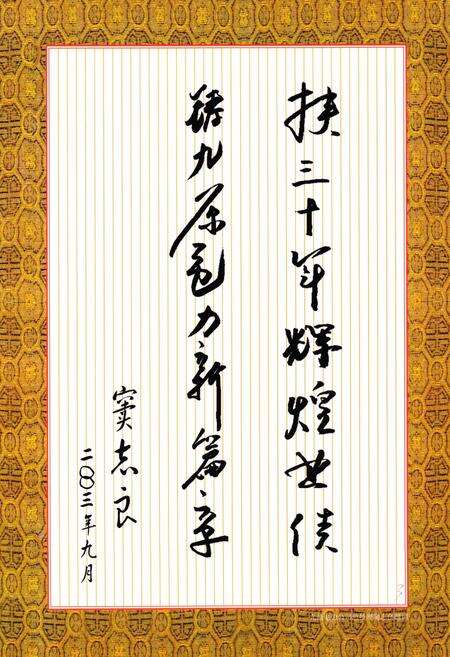 挟三十年辉煌业绩
铸九原电力新篇章
窦志良
二〇〇三年九月